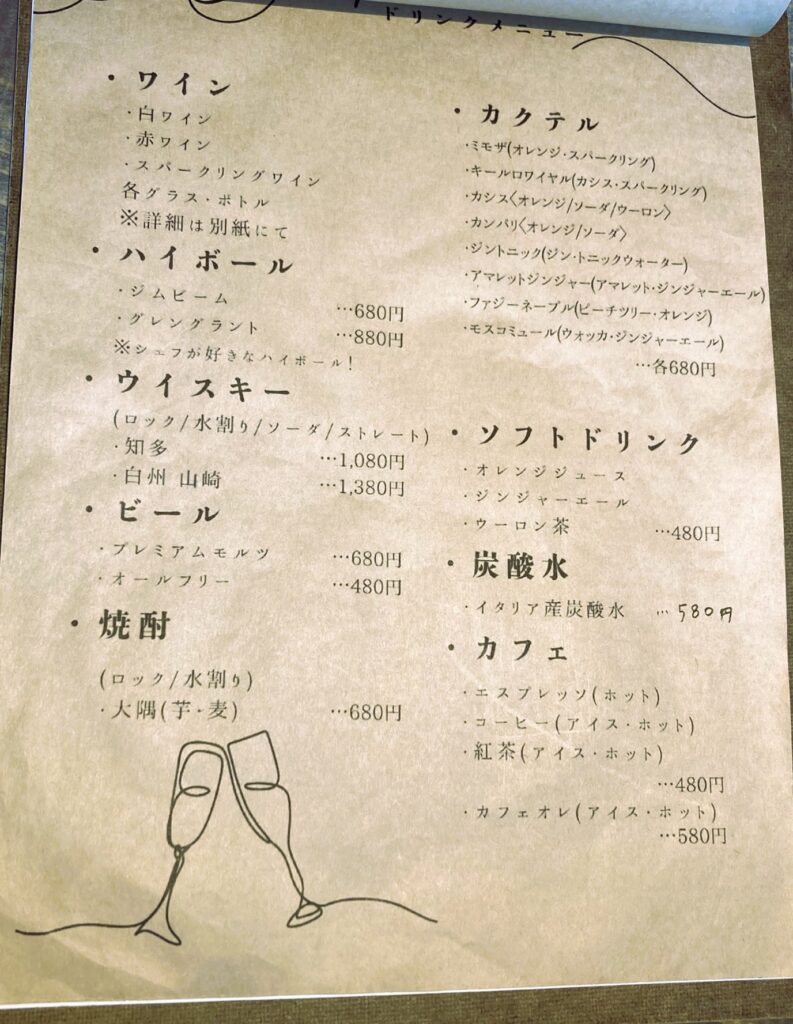 ドリンクメニュー
・ワイン
・白ワイン
・赤ワイン
・スパークリングワイン
各グラス・ボトル
※詳細は別紙にて
・ハイボール
・ジムビーム …680円
・グレングラント …880円
※シェフが好きなハイボール!
・ウイスキー
(ロック/水割り/ソーダ/ストレート)
・知多 …1,080円
・白州 山崎 …1,380円
・ビール
・プレミアムモルツ …680円
・オールフリー …480円
・焼酎
(ロック/水割り)
・大隅(芋・麦) …680円
・カクテル
・ミモザ(オレンジ・スパークリング)
・キールロワイヤル(カシス・スパークリング)
・カシス〈オレンジ/ソーダ/ウーロン〉
・カンパリ〈オレンジ/ソーダ〉
・ジントニック(ジン・トニックウォーター)
・アマレットジンジャー(アマレット・ジンジャーエール)
・ファジーネーブル(ピーチツリー・オレンジ)
・モスコミュール(ウォッカ・ジンジャーエール)
…各680円
・ソフトドリンク
・オレンジジュース
・ジンジャーエール
・ウーロン茶 …480円
・炭酸水
・イタリア産炭酸水 …580円
・カフェ
・エスプレッソ(ホット)
・コーヒー(アイス・ホット)
・紅茶(アイス・ホット)
…480円
・カフェオレ(アイス・ホット)
…580円